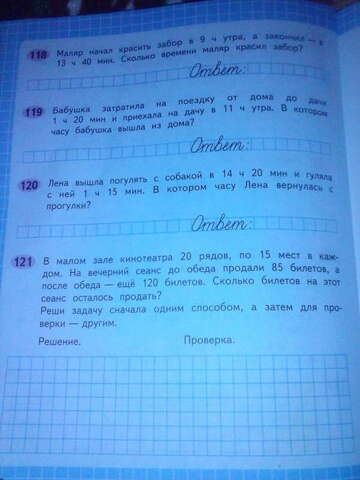 118 Маляр начал красить забор в 9 ч утра, а закончил — в
13 ч 40 мин. Сколько времени маляр красил забор?
Ответ:
119 Бабушка затратила на поездку от дома до дачи
1 ч 20 мин и приехала на дачу в 11 ч утра. В котором
часу бабушка вышла из дома?
Ответ:
120 Лена вышла погулять с собакой в 14 ч 20 мин и гуляла
с ней 1 ч 15 мин. В котором часу Лена вернулась с
прогулки?
Ответ:
121 В малом зале кинотеатра 20 рядов, по 15 мест в каж-
дом. На вечерний сеанс до обеда продали 85 билетов, а
после обеда — ещё 120 билетов. Сколько билетов на этот
сеанс осталось продать?
Реши задачу сначала одним способом, а затем для про-
верки — другим.
Решение. Проверка.